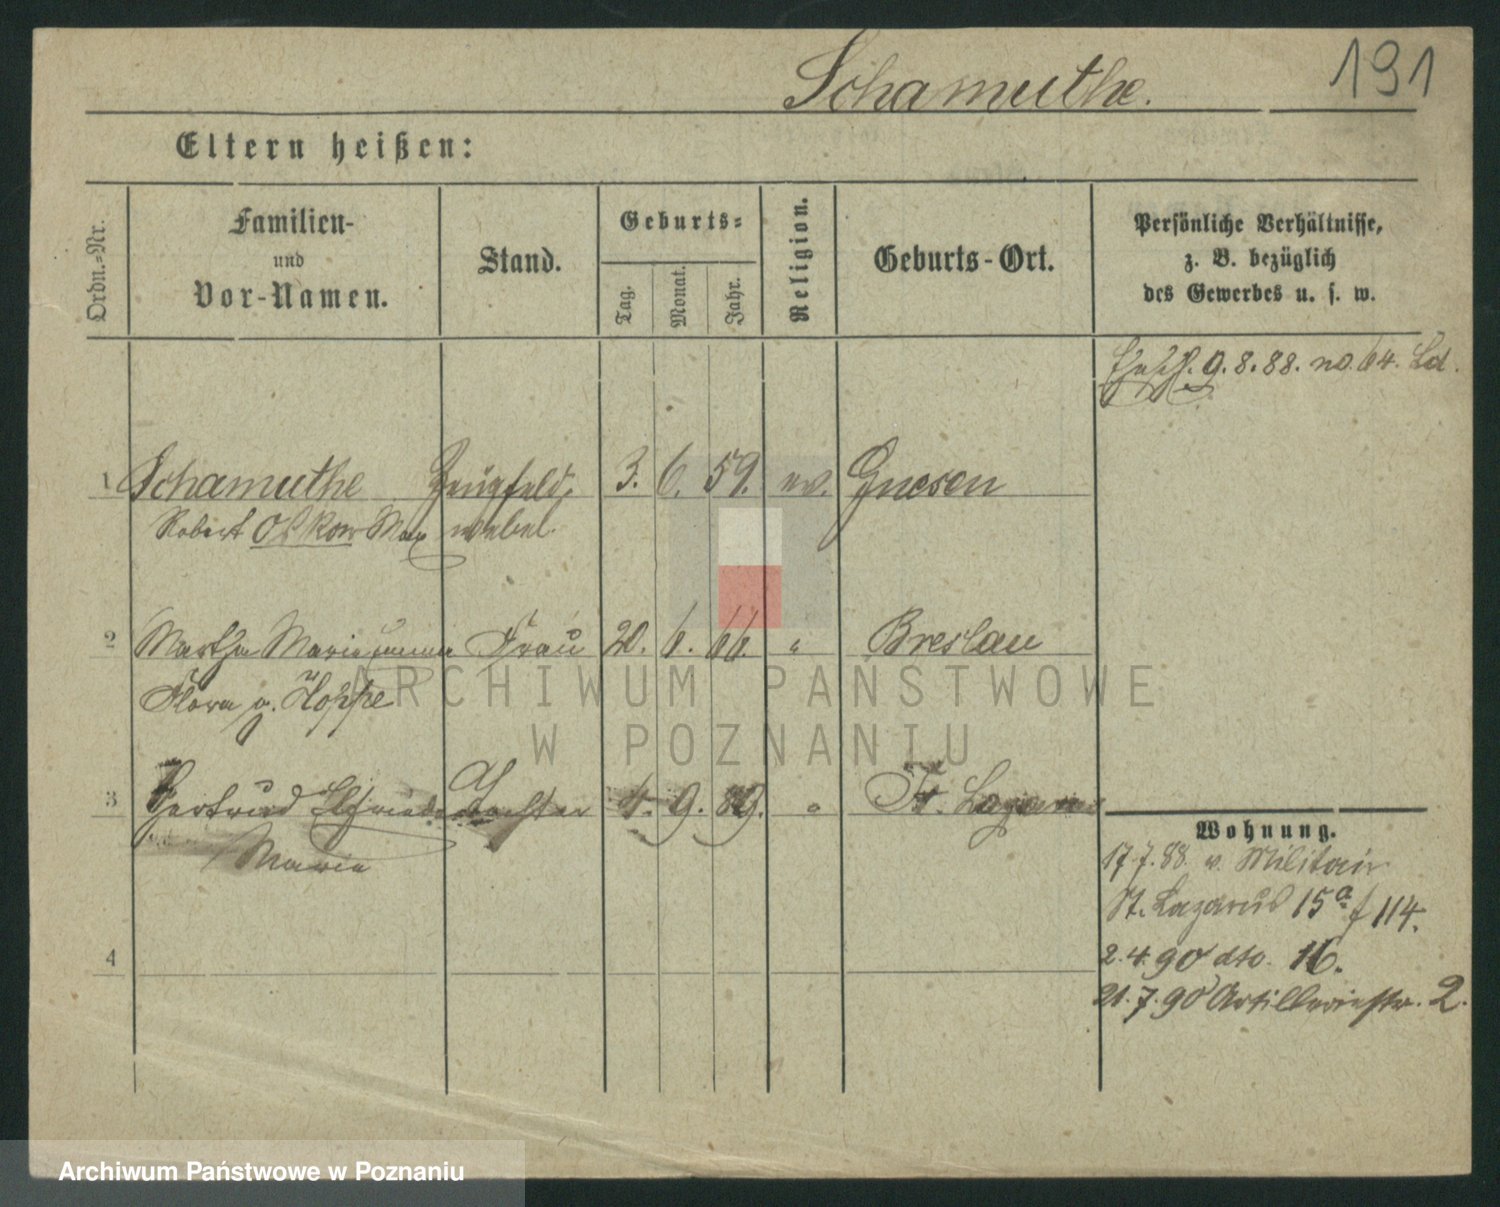 Schamuthe.
191
Eltern heißen:
Ordn.-Nr.
Familien-
und
Vor-Namen.
Stand.
Geburts-
Tag.
Monat.
Jahr.
Religion.
Geburts-Ort.
Persönliche Verhältnisse,
z. B. bezüglich
des Gewerbes u. s. w.
9.8.88. no. 64.
1 Schamuthe Zeugfeld- 3. 6. 59. ev. Gnesen
Robert Oskar Max webel.
2 Martha Marie Emma Frau 20. 6. 66. " Breslau
Flora g. Hoppe
ARCHIWUM PAŃSTWOWE
W POZNANIU
3 Gertrud Elfriede Tochter 4. 9. 89. " St. Lazarus
Marie
Wohnung.
17.7.88. v. Militair
St. Lazarus 15a f 114.
4
2.4.90 dto. 16.
21.7.90 Artilleriestr. 2.
Archiwum Państwowe w Poznaniu